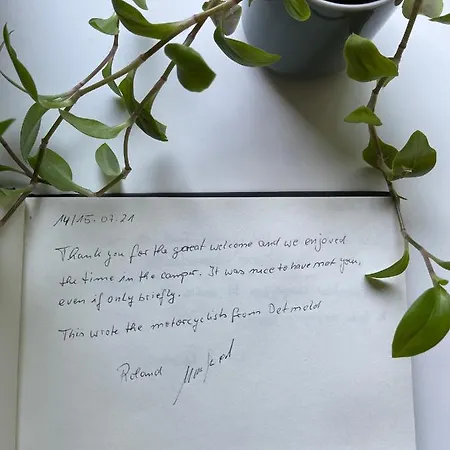 14/15.07.21
Thank you for the great welcome and we enjoyed
the time in the camper. It was nice to have met you,
even if only briefly.
This wrote the motorcyclists from Detmold
Roland